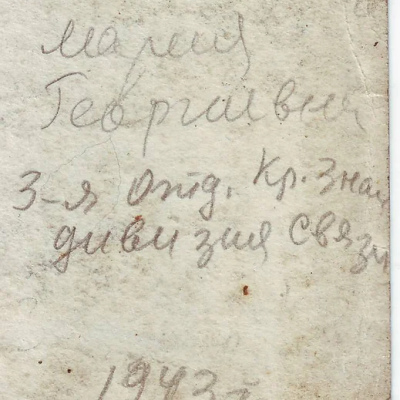 Мария
Георгиевна
3-я отд. Кр. Знам
дивизия связи
1943 г